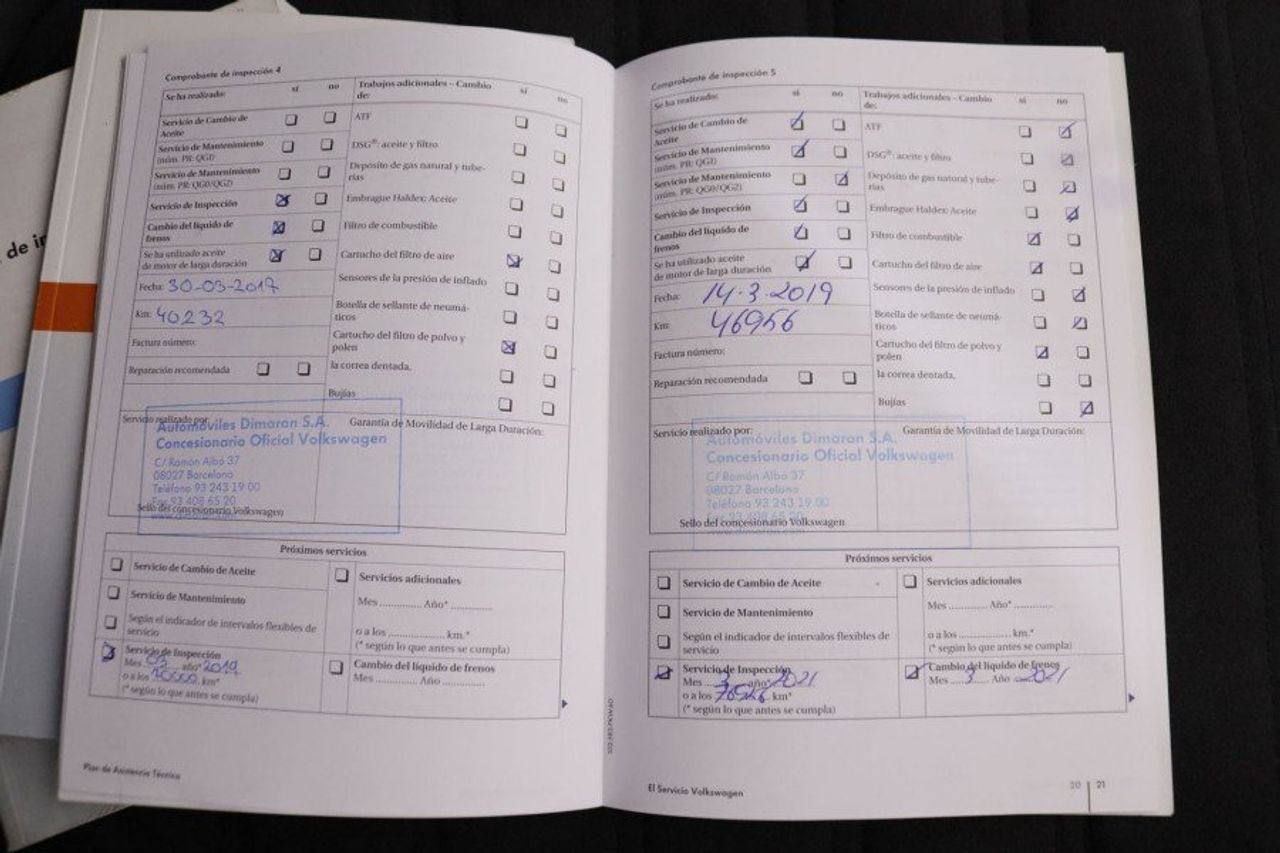 de in
Comprobante de inspección 4
Se ha realizado: sí no
Servicio de Cambio de
Aceite
Servicio de Mantenimiento
(núm. PR: QG1)
Servicio de Mantenimiento
(núm. PR: QG0/QG2)
Servicio de Inspección
Cambio del líquido de
frenos
Se ha utilizado aceite
de motor de larga duración
Fecha: 30-03-2017
Km: 40232
Factura número:
Reparación recomendada
Trabajos adicionales – Cambio
de: sí no
ATF
DSG®: aceite y filtro
Depósito de gas natural y tube-
rías
Embrague Haldex: Aceite
Filtro de combustible
Cartucho del filtro de aire
Sensores de la presión de inflado
Botella de sellante de neumá-
ticos
Cartucho del filtro de polvo y
polen
la correa dentada,
Bujías
Servicio realizado por:
Garantía de Movilidad de Larga Duración:
Automóviles Dimaran S.A.
Concesionario Oficial Volkswagen
C/ Ramón Albó 37
08027 Barcelona
Teléfono 93 243 19 00
Fax 93 408 65 20
www.dimaran.com
Sello del concesionario Volkswagen
Próximos servicios
Servicio de Cambio de Aceite
Servicio de Mantenimiento
Según el indicador de intervalos flexibles de
servicio
Servicio de Inspección
Mes 03 año* 2019
o a los km*
(* según lo que antes se cumpla)
Servicios adicionales
Mes .............. Año* ..............
o a los .................... km.*
(* según lo que antes se cumpla)
Cambio del líquido de frenos
Mes .............. Año ..............
Plan de Asistencia Técnica
Comprobante de inspección 5
Se ha realizado: sí no
Servicio de Cambio de
Aceite
Servicio de Mantenimiento
(núm. PR: QG1)
Servicio de Mantenimiento
(núm. PR: QG0/QG2)
Servicio de Inspección
Cambio del líquido de
frenos
Se ha utilizado aceite
de motor de larga duración
Fecha: 14-3-2019
Km: 46956
Factura número:
Reparación recomendada
Trabajos adicionales – Cambio
de: sí no
ATF
DSG®: aceite y filtro
Depósito de gas natural y tube-
rías
Embrague Haldex: Aceite
Filtro de combustible
Cartucho del filtro de aire
Sensores de la presión de inflado
Botella de sellante de neumá-
ticos
Cartucho del filtro de polvo y
polen
la correa dentada,
Bujías
Servicio realizado por:
Garantía de Movilidad de Larga Duración:
Automóviles Dimaran S.A.
Concesionario Oficial Volkswagen
C/ Ramón Albó 37
08027 Barcelona
Teléfono 93 243 19 00
Fax 93 408 65 20
www.dimaran.com
Sello del concesionario Volkswagen
Próximos servicios
Servicio de Cambio de Aceite
Servicio de Mantenimiento
Según el indicador de intervalos flexibles de
servicio
Servicio de Inspección
Mes 3 año* 2021
o a los 76956 km*
(* según lo que antes se cumpla)
Servicios adicionales
Mes .............. Año* ..............
o a los .................... km.*
(* según lo que antes se cumpla)
Cambio del líquido de frenos
Mes 3 Año 2021
El Servicio Volkswagen
20 21